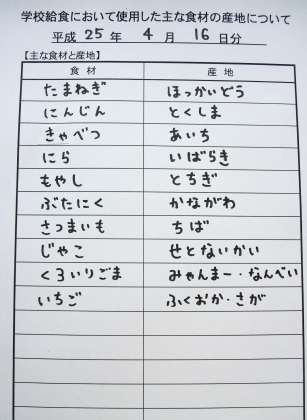 学校給食において使用した主な食材の産地について
平成 25 年 4 月 16 日分
【主な食材と産地】
食材 産地
たまねぎ ほっかいどう
にんじん とくしま
きゃべつ あいち
にら いばらき
もやし とちぎ
ぶたにく かながわ
さつまいも ちば
じゃこ せとないかい
くろいりごま みゃんまー・なんべい
いちご ふくおか・さが